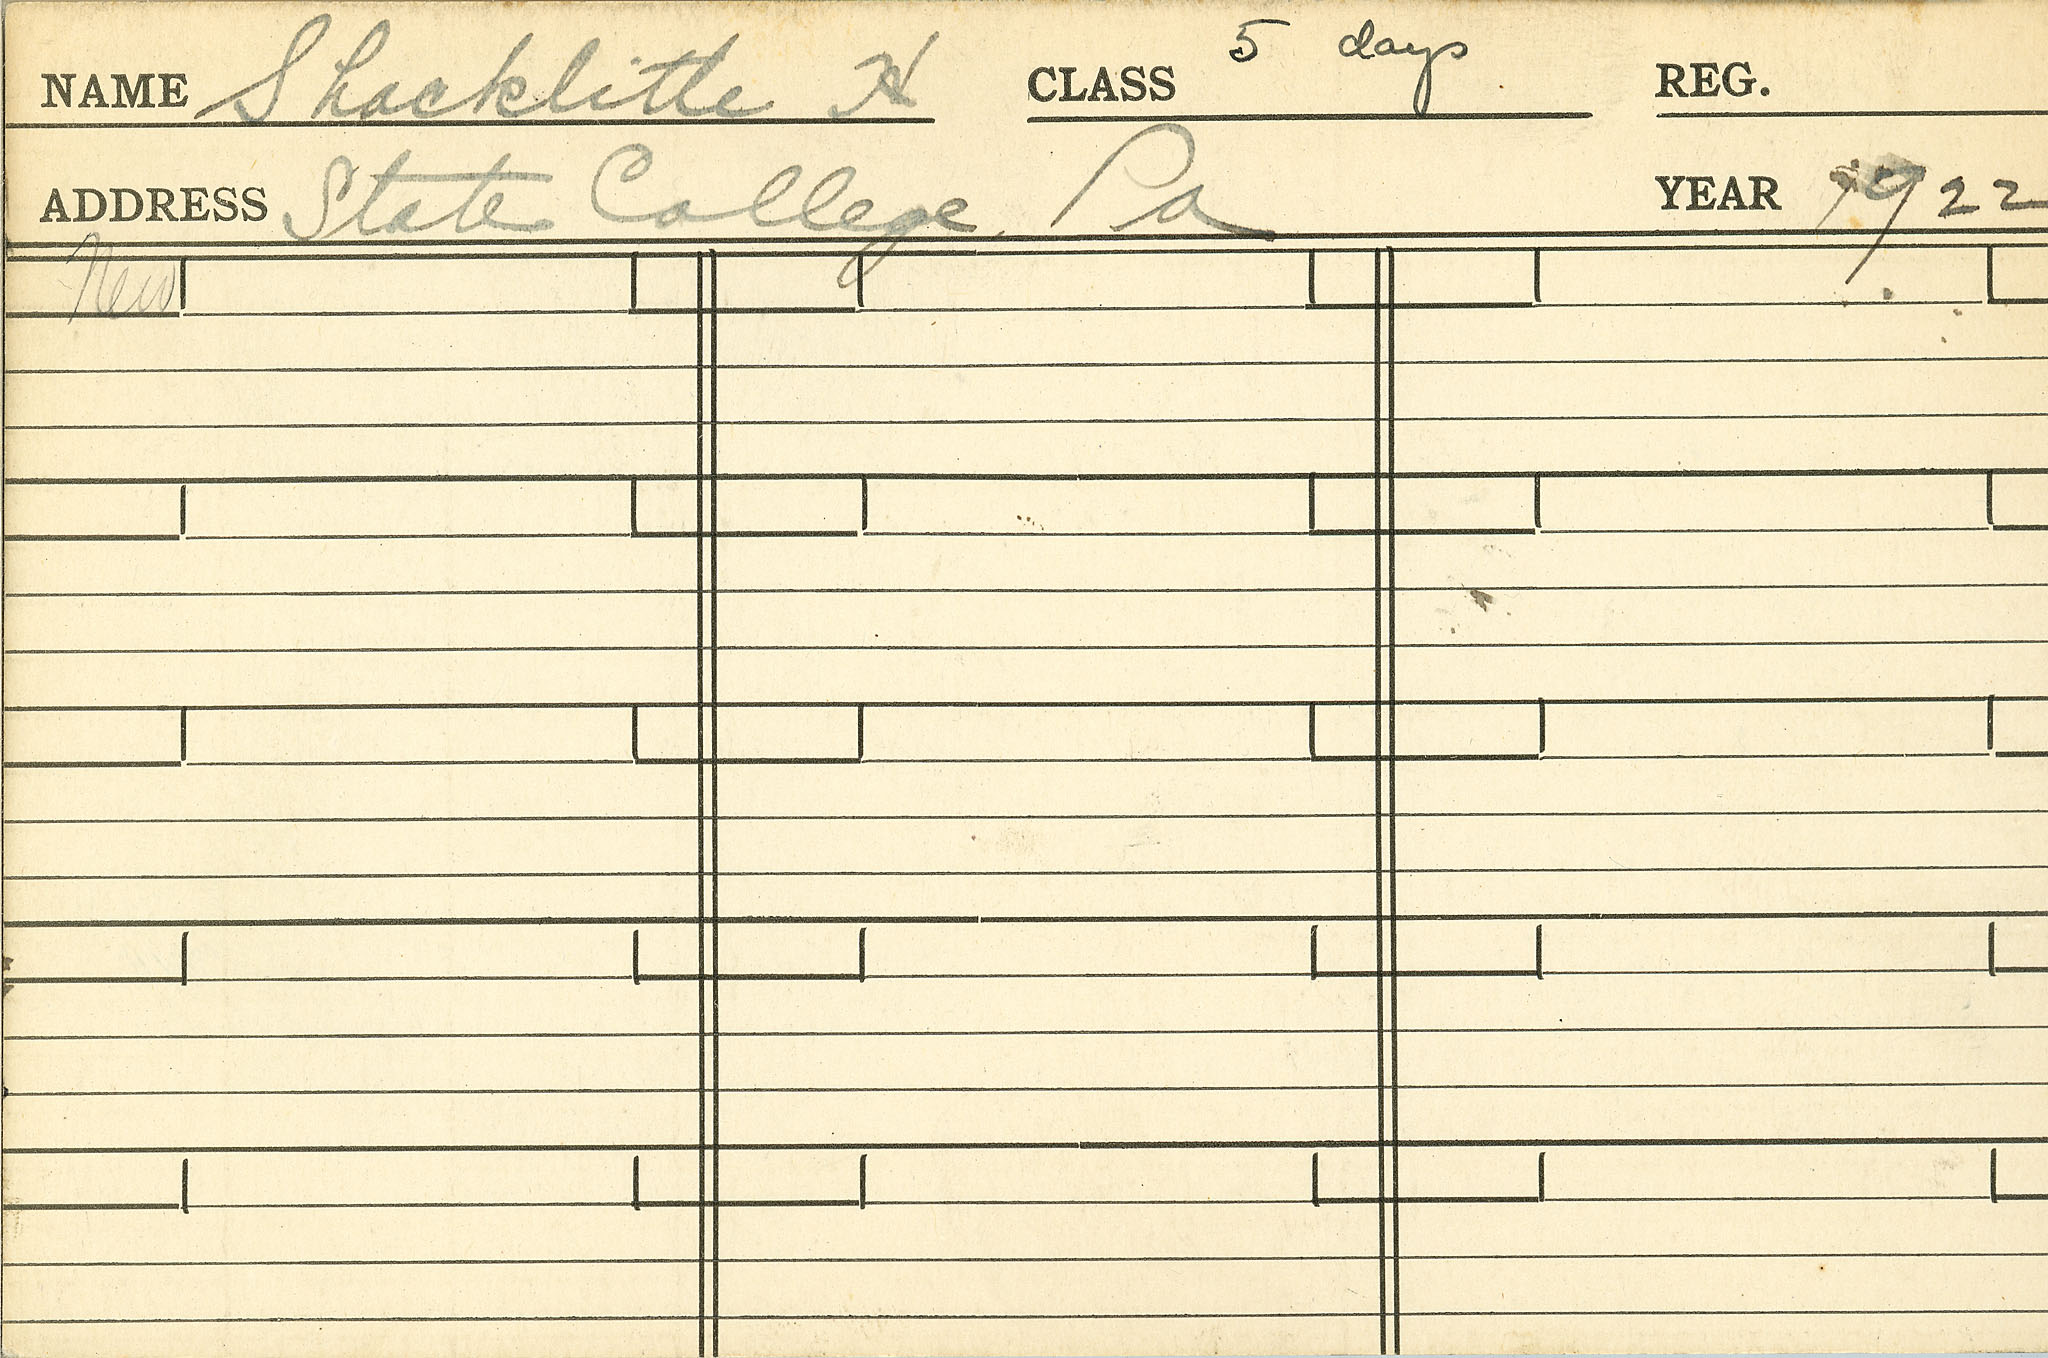 NAME Shacklitle H CLASS 5 days REG.
ADDRESS State College, Pa YEAR 1922
New